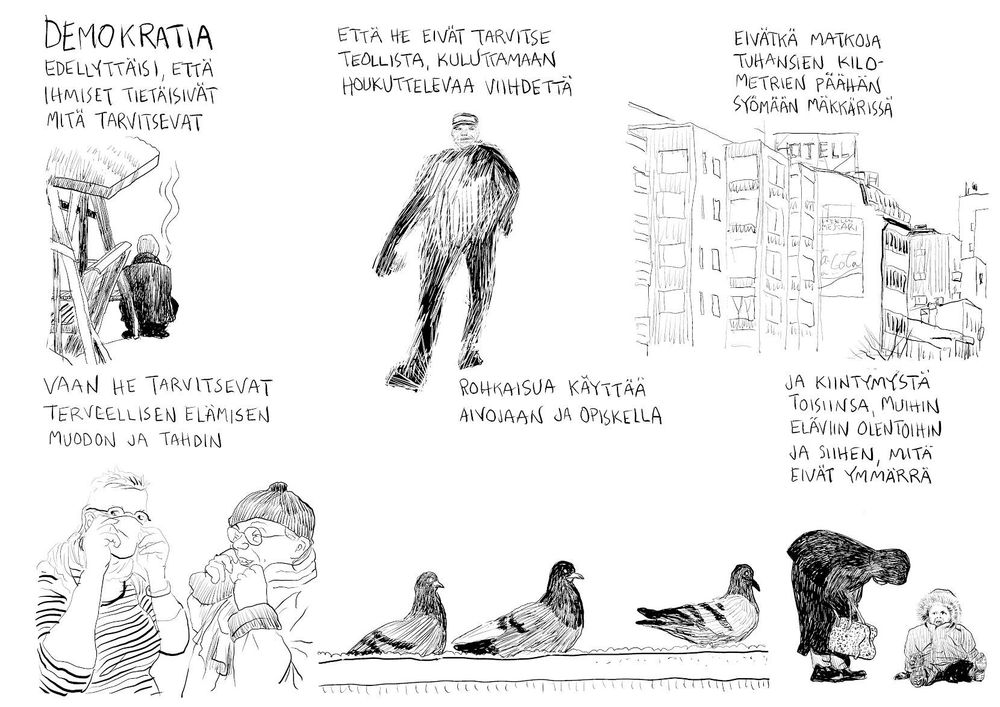 DEMOKRATIA
EDELLYTTÄISI, ETTÄ
IHMISET TIETÄISIVÄT
MITÄ TARVITSEVAT
ETTÄ HE EIVÄT TARVITSE
TEOLLISTA, KULUTTAMAAN
HOUKUTTELEVAA VIIHDETTÄ
EIVÄTKÄ MATKOJA
TUHANSIEN KILO-
METRIEN PÄÄHÄN
SYÖMÄÄN MÄKKÄRISSÄ
HOTELLI
VAAN HE TARVITSEVAT
TERVEELLISEN ELÄMISEN
MUODON JA TAHDIN
ROHKAISUA KÄYTTÄÄ
AIVOJAAN JA OPISKELLA
JA KIINTYMYSTÄ
TOISIINSA, MUIHIN
ELÄVIIN OLENTOIHIN
JA SIIHEN, MITÄ
EIVÄT YMMÄRRÄ